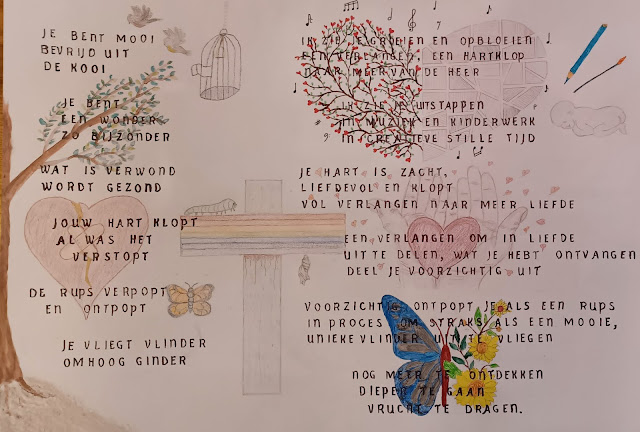 JE BENT MOOI
BEVRIJD UIT
DE KOOI
JE BENT
EEN WONDER
ZO BIJZONDER
WAT IS VERWOND
WORDT GEZOND
JOUW HART KLOPT
AL WAS HET
VERSTOPT
DE RUPS VERPOPT
EN ONTPOPT
JE VLIEGT VLINDER
OMHOOG GINDER
IK ZIE JE GROEIEN EN OPBLOEIEN
EEN VERLANGEN, EEN HARTKLOP
NAAR MEER VAN DE HEER
IK ZIE JE UITSTAPPEN
IN MUZIEK EN KINDERWERK
IN CREATIEVE STILLE TIJD
JE HART IS ZACHT,
LIEFDEVOL EN KLOPT
VOL VERLANGEN NAAR MEER LIEFDE
EEN VERLANGEN OM IN LIEFDE
UIT TE DELEN, WAT JE HEBT ONTVANGEN
DEEL JE VOORZICHTIG UIT
VOORZICHTIG ONTPOPT JE ALS EEN RUPS
IN PROCES OM STRAKS ALS EEN MOOIE,
UNIEKE VLINDER UIT TE VLIEGEN
NOG MEER TE ONTDEKKEN
DIEPER TE GAAN
VRUCHT TE DRAGEN.